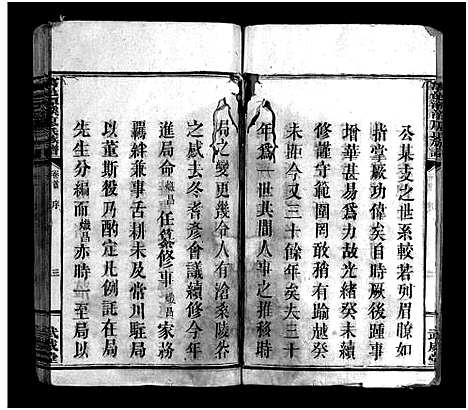 公某支之世系較若列眉瞭如
指掌厥功偉矣自時厥後踵事
增華甚易為力故光緒癸未續
修謹守範圍罔敢稍有踰越癸
未距今又三十餘年矣夫三十
年為一世其間人事之推移時
局之變更幾分人有滄桑陵谷
之感去冬耆彥會議續修今年
進局命熾昌任纂修事熾昌家務
羈絆兼事舌耕未及常川駐局
以董斯役乃酌定凡例託在局
先生分編而熾昌亦時一至局以
序
三
武威堂